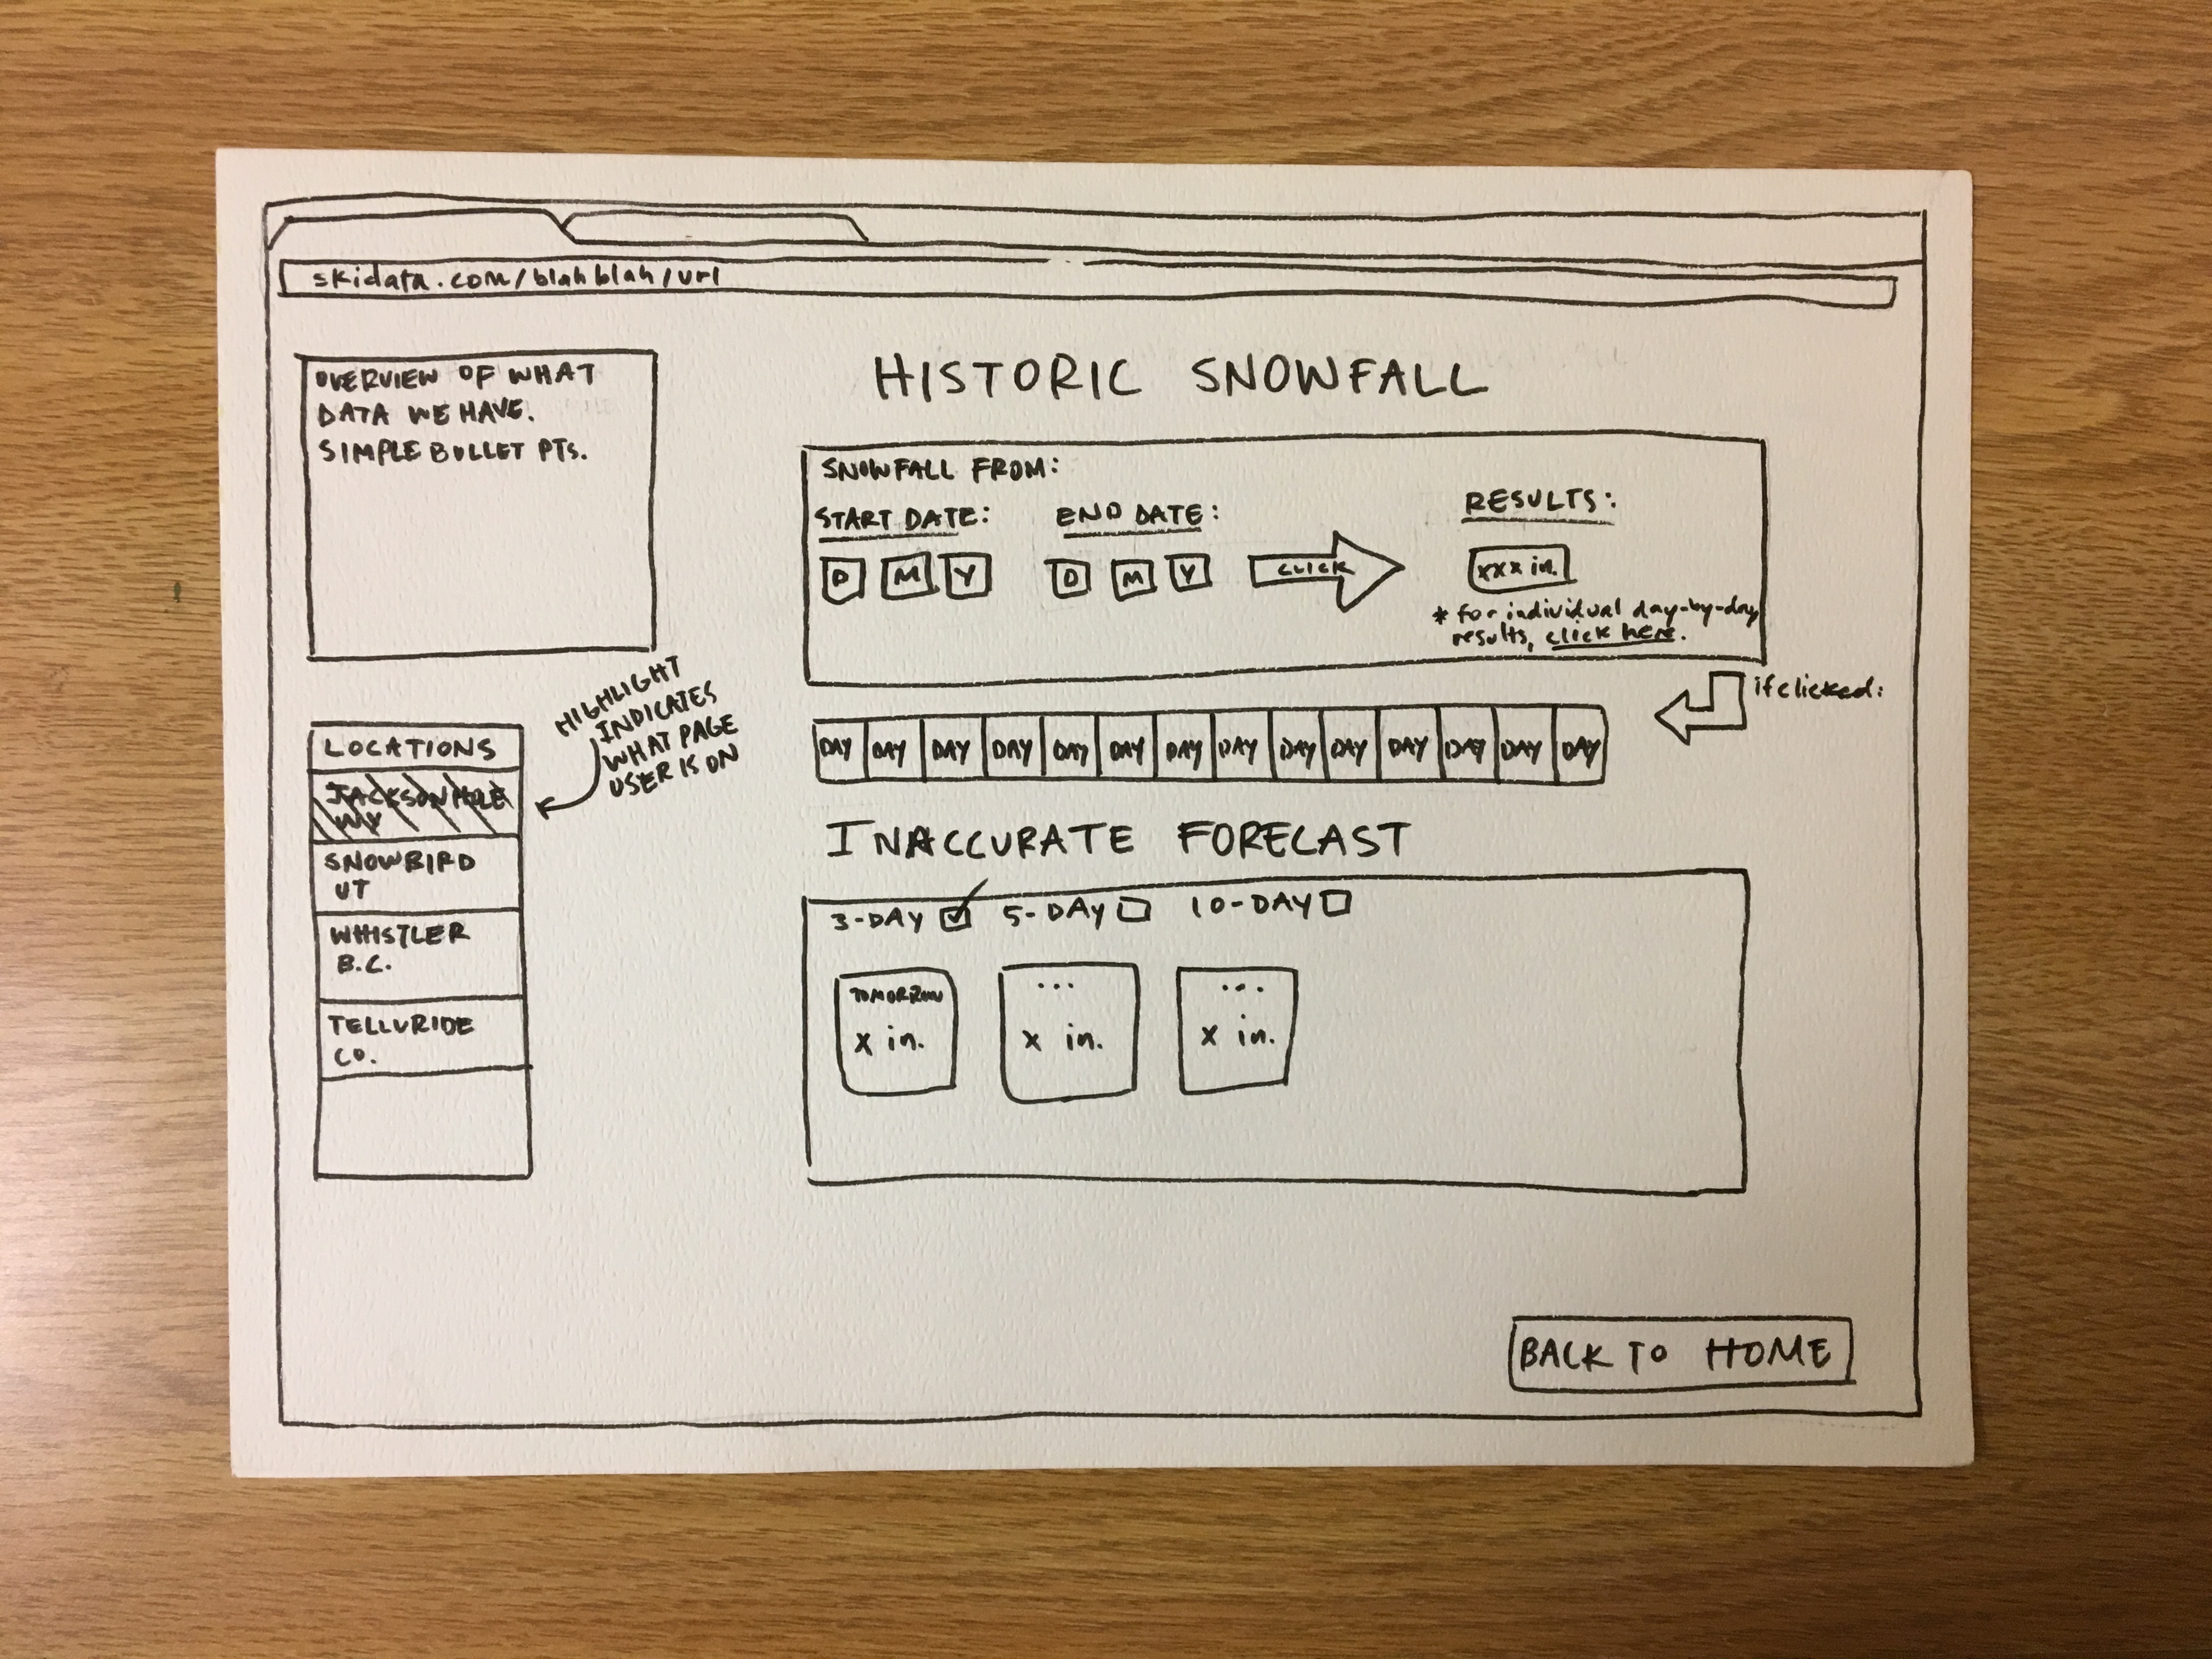 skidata.com/blahblah/url
OVERVIEW OF WHAT
DATA WE HAVE.
SIMPLE BULLET PTS.
LOCATIONS
JACKSON HOLE
WY
SNOWBIRD
UT
WHISTLER
B.C.
TELLURIDE
CO.
HIGHLIGHT
INDICATES
WHAT PAGE
USER IS ON
HISTORIC SNOWFALL
SNOWFALL FROM:
START DATE: END DATE: RESULTS:
D M Y D M Y CLICK XXX in.
* for individual day-by-day
results, click here.
if clicked:
DAY DAY DAY DAY DAY DAY DAY DAY DAY DAY DAY DAY DAY DAY
INACCURATE FORECAST
3-DAY 5-DAY 10-DAY
TOMORROW ... ...
X in. X in. X in.
BACK TO HOME